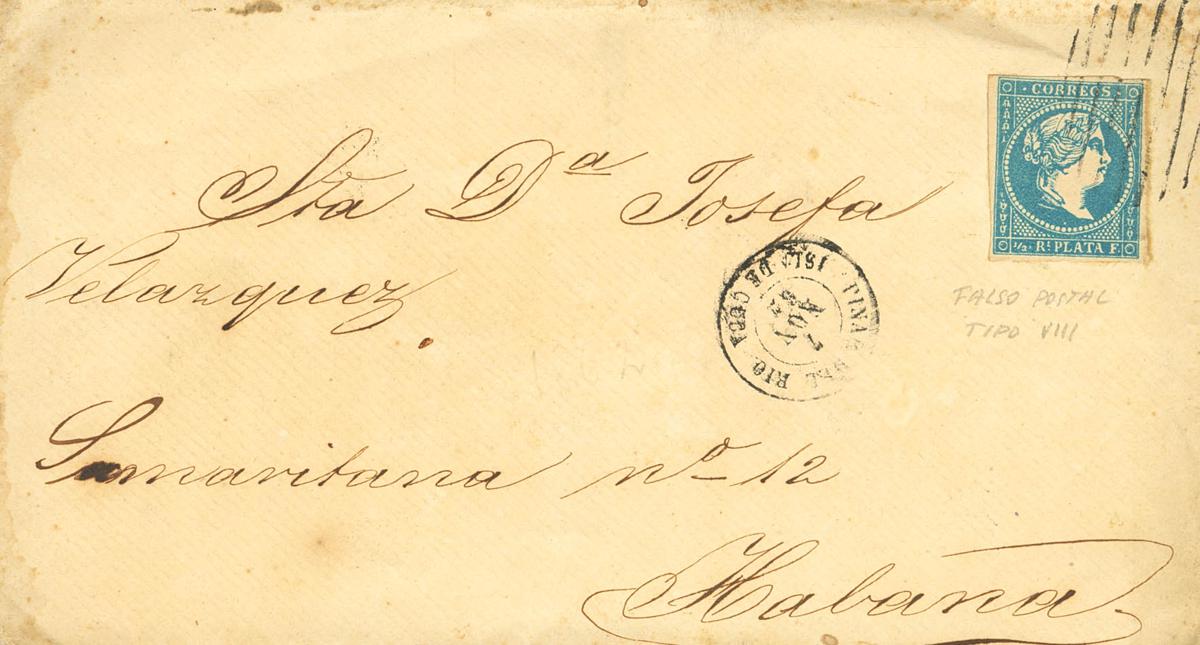 CORREOS
½ Rl PLATA F.
Sta Da Josefa
Velazquez
FALSO POSTAL
TIPO VIII
PINAR DEL RIO. ISLA DE CUBA
7
AGO
Samaritana no-12
Habana